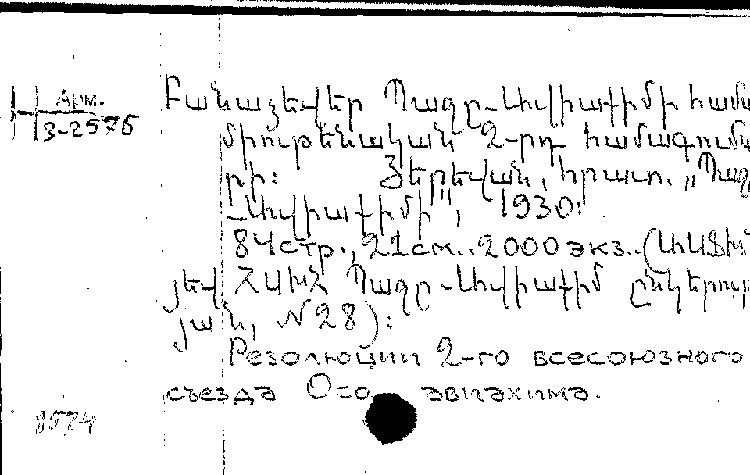 Арм.
3-2575
Բանաձեվեր Պազո-Ավիաքիմի համ
միութենական 2-րդ համագումա
րի: Յերեվան, հրատ. „Պազ
-Ավիաքիմի", 1930.
84 стр., 21 см.. 2000 экз.. (ԱԽՖԽ
յեվ ՀԱԽՀ Պազո-Ավիաքիմ ընկերու
յան, №28):
Резолюции 2-го всесоюзного
съезда Осо авиахима.
8574